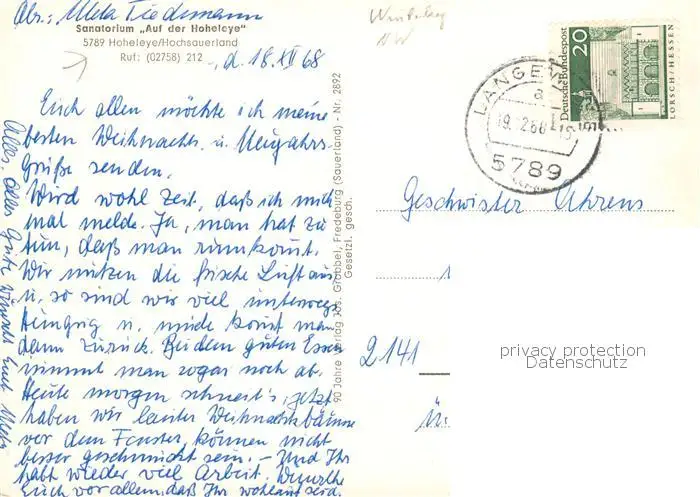 Abs.: Meta Tiedemann
Sanatorium „Auf der Hoheleye"
5789 Hoheleye/Hochsauerland
Ruf: (02758) 212
, d. 18. XII 68
Euch allen möchte ich meine
besten Weihnachts- u. Neujahrs-
grüße senden.
Wird wohl Zeit, daß ich mich
mal melde. Ja, man hat zu
tun, daß man rumkomt.
Wir nutzen die frische Luft aus
u. so sind wir viel unterwegs
Hungrig u. müde komt man
dann zurück. Bei dem guten Essen
nimmt man sogar noch ab.
Heute morgen schneit's, jetzt
haben wir lauter Weihnachtsbäume
vor dem Fenster, können nicht
besser geschmückt sein. – Und Ihr
habt wieder viel Arbeit. Wünsche
Euch vor allem, daß Ihr wohlauf seid.
Alles, alles Gute wünscht Euch Meta
90 Jahre Verlag Jos. Grobbel, Fredeburg (Sauerland) - Nr. 2892
Gesetzl. gesch.
Winterberg
NW
20
Deutsche Bundespost
LORSCH/HESSEN
LANGEW
a
19.12.68
5789
Geschwister Ahrens
2141
privacy protection
Datenschutz